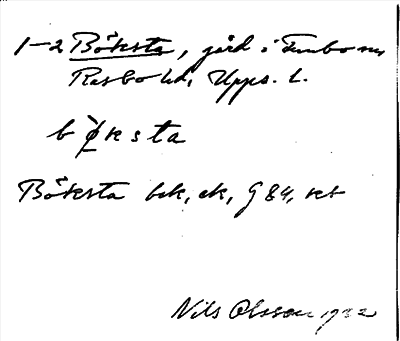 1-2 Böksta, gård i Funbo sn
Rasbo hd, Upps. l.
b ø̀ k s t a
Böksta bek, ek, G 84,
Nils Olsson 1932